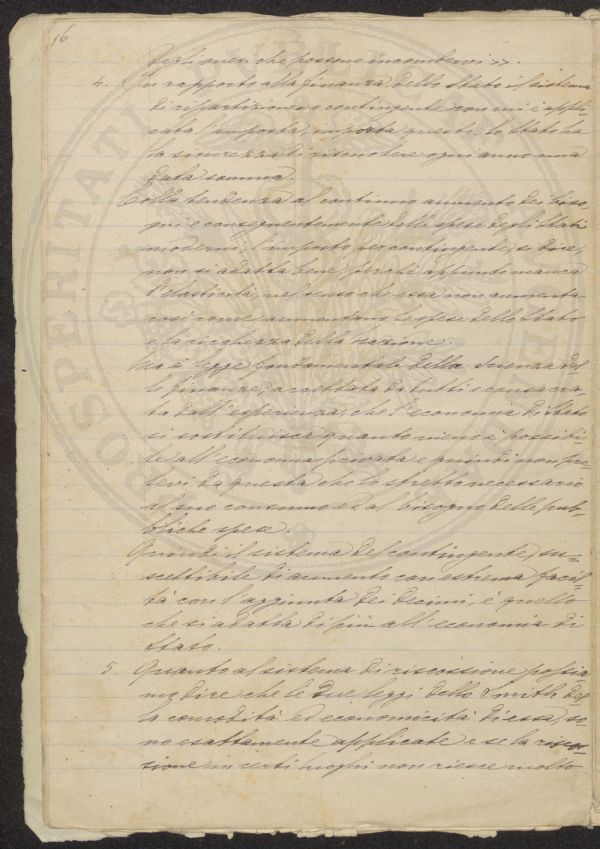 16
degli oneri che possono incombervi ».
4. In rapporto alla finanza dello Stato il sistema
di ripartizione o contingente con cui è appli-
cata l'imposta, importa questi: lo Stato ha
la sicurezza di riscuotere ogni anno una
data somma.
Colla tendenza al continuo aumento dei biso-
gni e conseguentemente delle spese degli Stati
moderni l'imposta per contingente, si dice,
non si adatta bene, perchè appunto manca
l'elasticità, nel senso che essa non aumenta
così come aumentano le spese dello Stato
e la ricchezza della Nazione.
Ma è legge fondamentale della Scienza del-
le finanze, accettata da tutti e consacra-
ta dall'esperienza, che l'economia di Stato
si sostituisca quanto meno è possibi-
le all'economia privata e quindi non pre-
levi da questa che lo stretto necessario
al suo consumo ed al bisogno delle pub-
bliche spese.
Quindi il sistema del contingente, su-
scettibile di aumento con estrema facili-
tà con l'aggiunta dei decimi, è quello
che si adatta di più all'economia di
Stato.
5. Quanto al sistema di riscossione possia-
mo dire che le due leggi dello Smith del-
la comodità ed economicità di essa, so-
no esattamente applicate e se la riscos-
sione in certi luoghi non riesce molto
PROSPERITATI